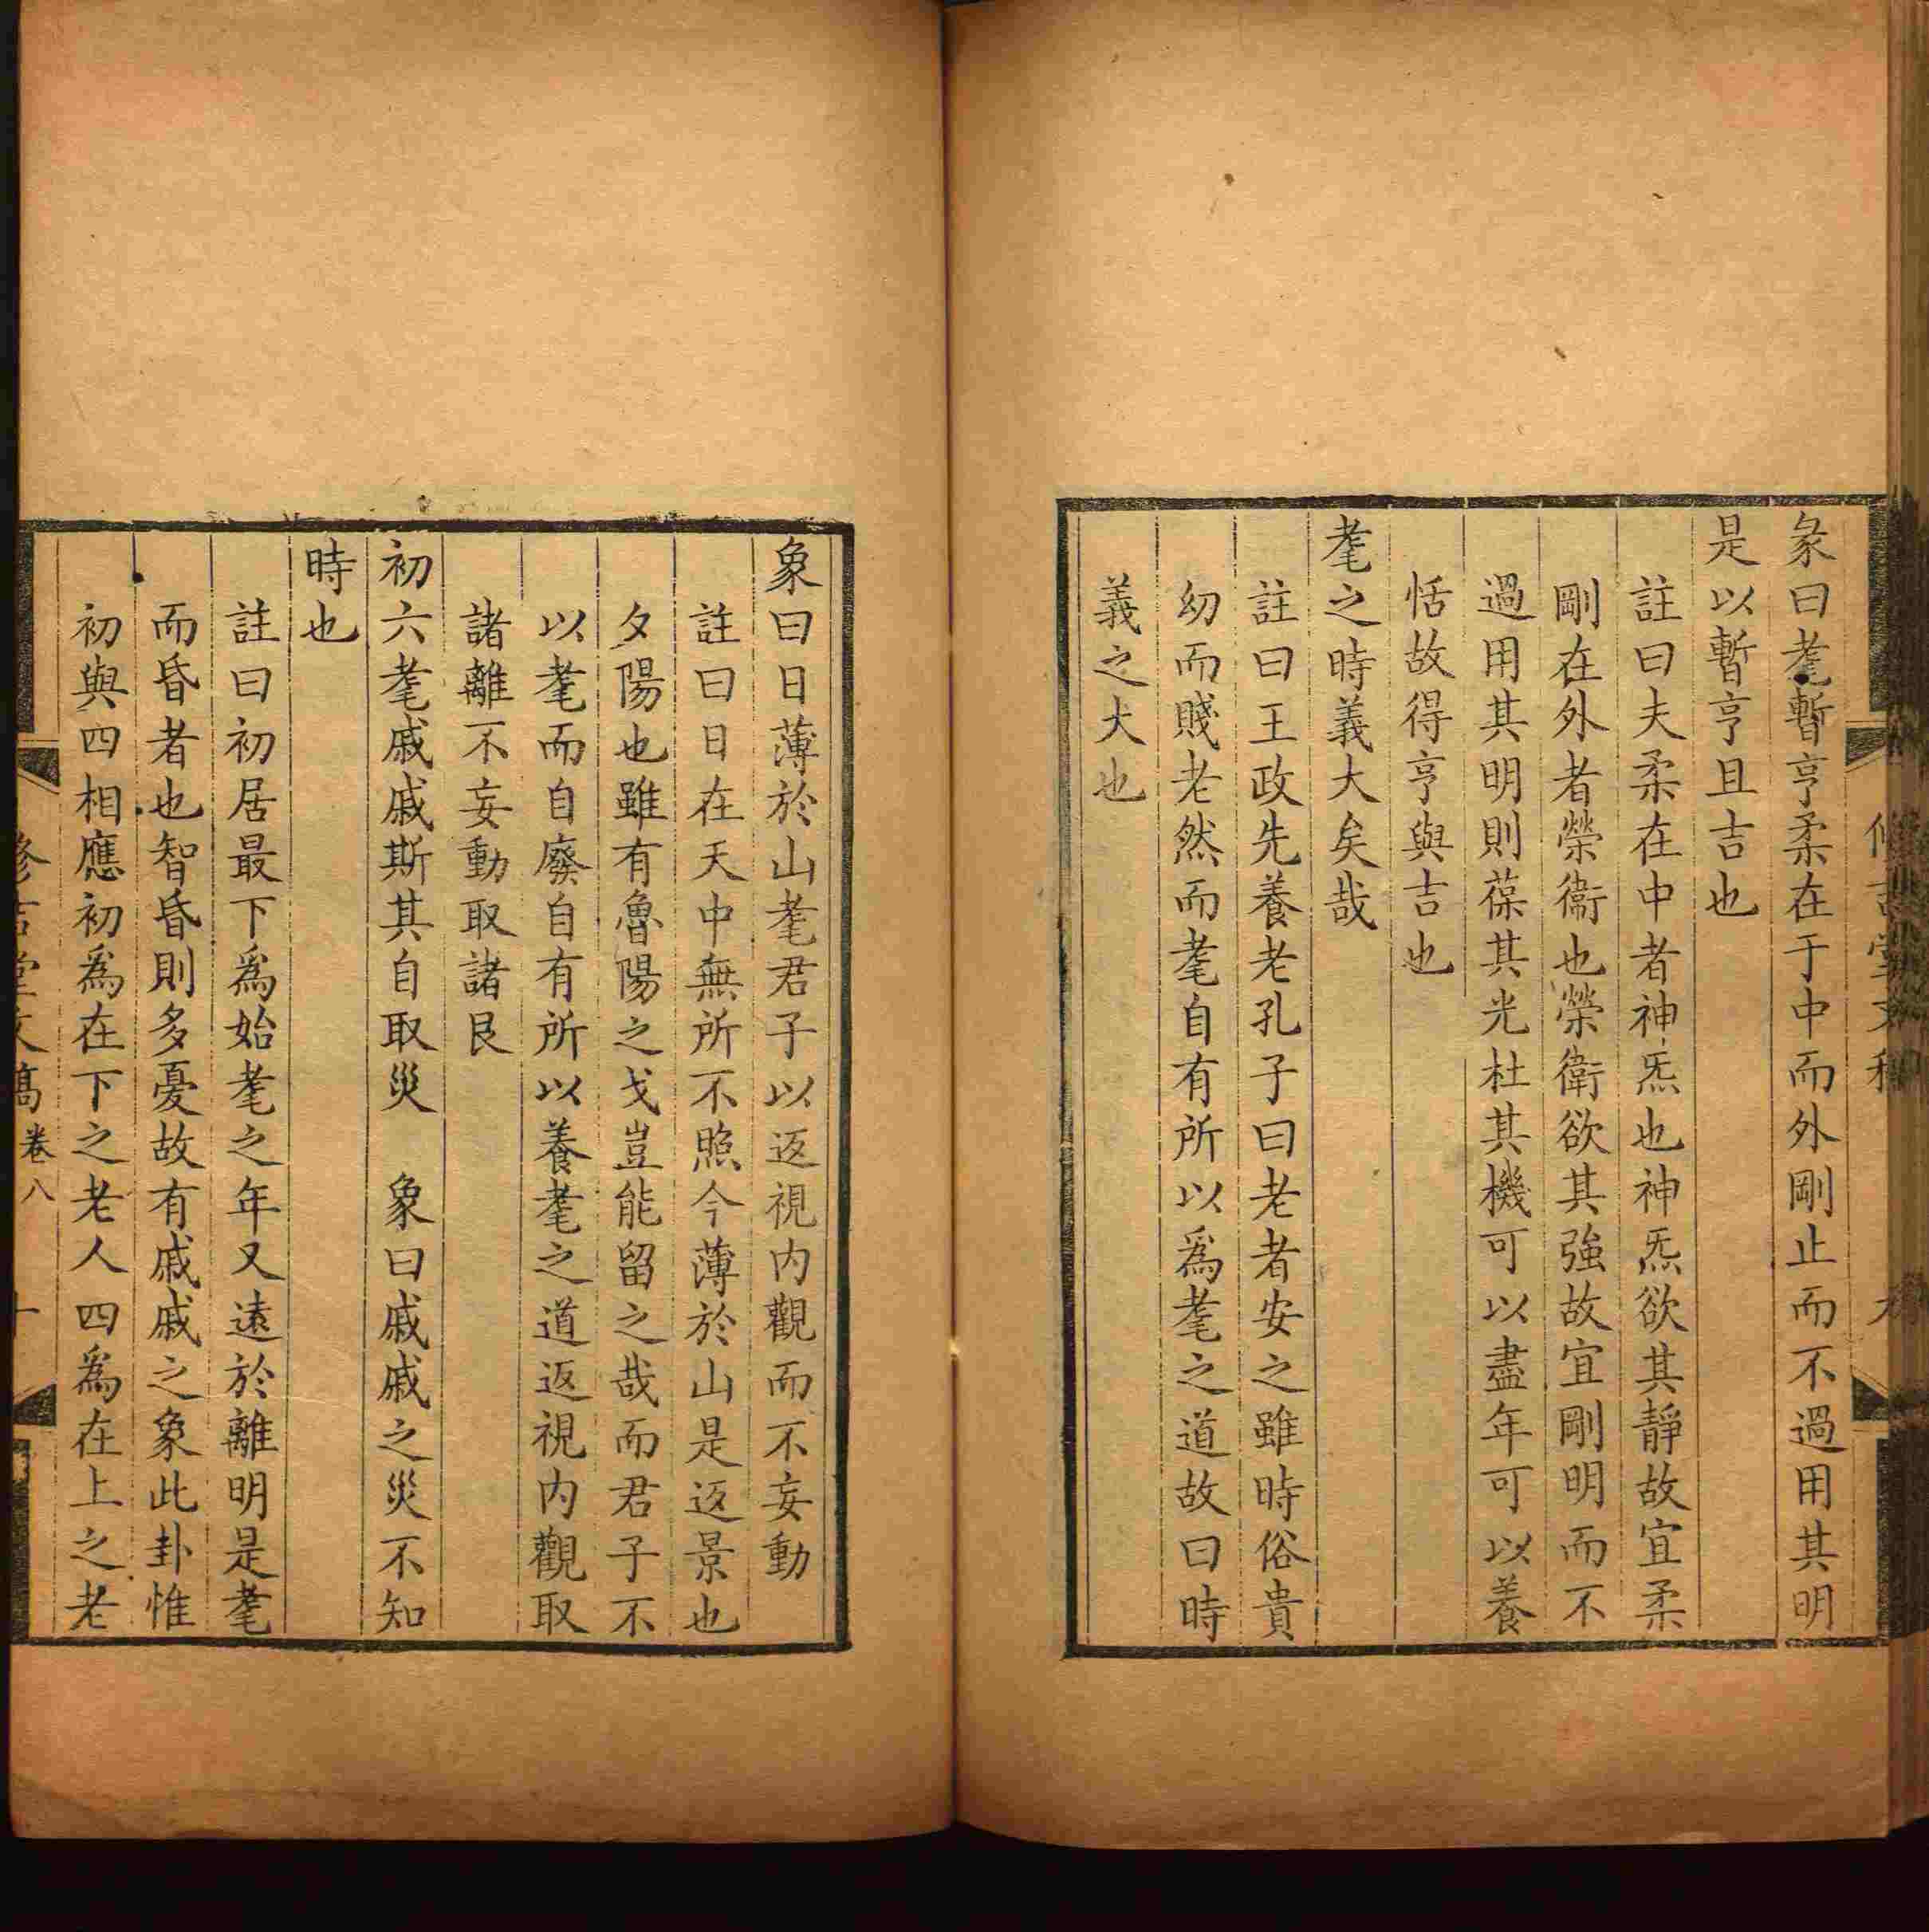 彖曰耄暫亨柔在于中而外剛止而不過用其明
是以暫亨且吉也
註曰夫柔在中者神炁也神炁欲其靜故宜柔
剛在外者榮衞也榮衛欲其強故宜剛明而不
過用其明則葆其光杜其機可以盡年可以養
恬故得亨與吉也
耄之時義大矣哉
註曰王政先養老孔子曰老者安之雖時俗貴
幼而賤老然而耄自有所以爲耄之道故曰時
義之大也
象曰日薄於山耄君子以返視内觀而不妄動
註曰日在天中無所不照今薄於山是返景也
夕陽也雖有魯陽之戈豈能留之哉而君子不
以耄而自廢自有所以養耄之道返視内觀取
諸離不妄動取諸艮
初六耄戚戚斯其自取災　象曰戚戚之災不知
時也
註曰初居最下爲始耄之年又遠於離明是耄
而昏者也智昏則多憂故有戚戚之象此卦惟
初與四相應初爲在下之老人四爲在上之老
堂文
卷八
十